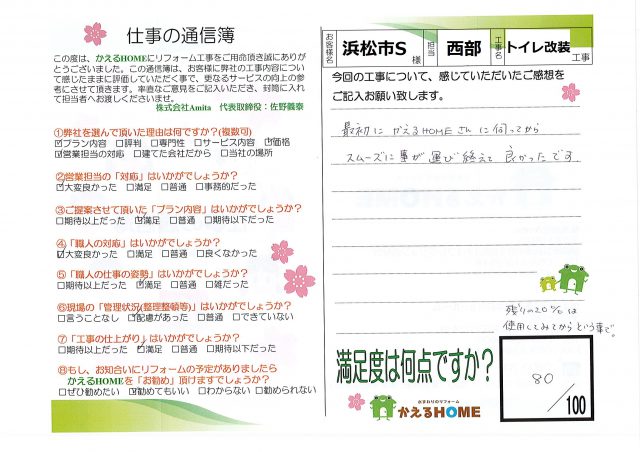 仕事の通信簿
この度は、かえるHOMEにリフォーム工事をご用命頂き誠にありが
とうございました。この通信簿は、お客様に弊社の工事内容につい
て感じたままに評価していただく事で、更なるサービスの向上の参
考にさせて頂きます。率直なご意見をご記入いただき、封筒に入れ
て担当者へお渡しくださいませ。
株式会社Amita 代表取締役：佐野義泰
①弊社を選んで頂いた理由は何ですか?(複数可)
☑プラン内容 □評判 □専門性 □サービス内容 ☑価格
☑営業担当の対応 □建てた会社だから □当社の場所
②営業担当の「対応」はいかがでしょうか?
☑大変良かった □満足 □普通 □事務的だった
③ご提案させて頂いた「プラン内容」はいかがでしょうか?
□期待以上だった ☑満足 □普通 □期待以下だった
④「職人の対応」はいかがでしょうか?
☑大変良かった □満足 □普通 □良くなかった
⑤「職人の仕事の姿勢」はいかがでしょうか?
□期待以上だった ☑満足 □普通 □雑だった
⑥現場の「管理状況(整理整頓等)」はいかがでしょうか?
□言うことなし ☑配慮があった □普通 □できていない
⑦「工事の仕上がり」はいかがでしょうか?
□期待以上だった ☑満足 □普通 □期待以下だった
⑧もし、お知合いにリフォームの予定がありましたら
かえるHOMEを「お勧め」頂けますでしょうか?
□ぜひ勧めたい ☑勧めてもいい □わからない □勧められない
お客様名 浜松市S 様 担当 西部 工事名 トイレ改装 工事
今回の工事について、感じていただいたご感想を
ご記入お願い致します。
最初に かえるHOMEさんに伺ってから
スムーズに事が運び終えて良かったです。
残りの20%は
使用してみてからという事で。
満足度は何点ですか?
80/100
水まわりのリフォーム
かえるHOME